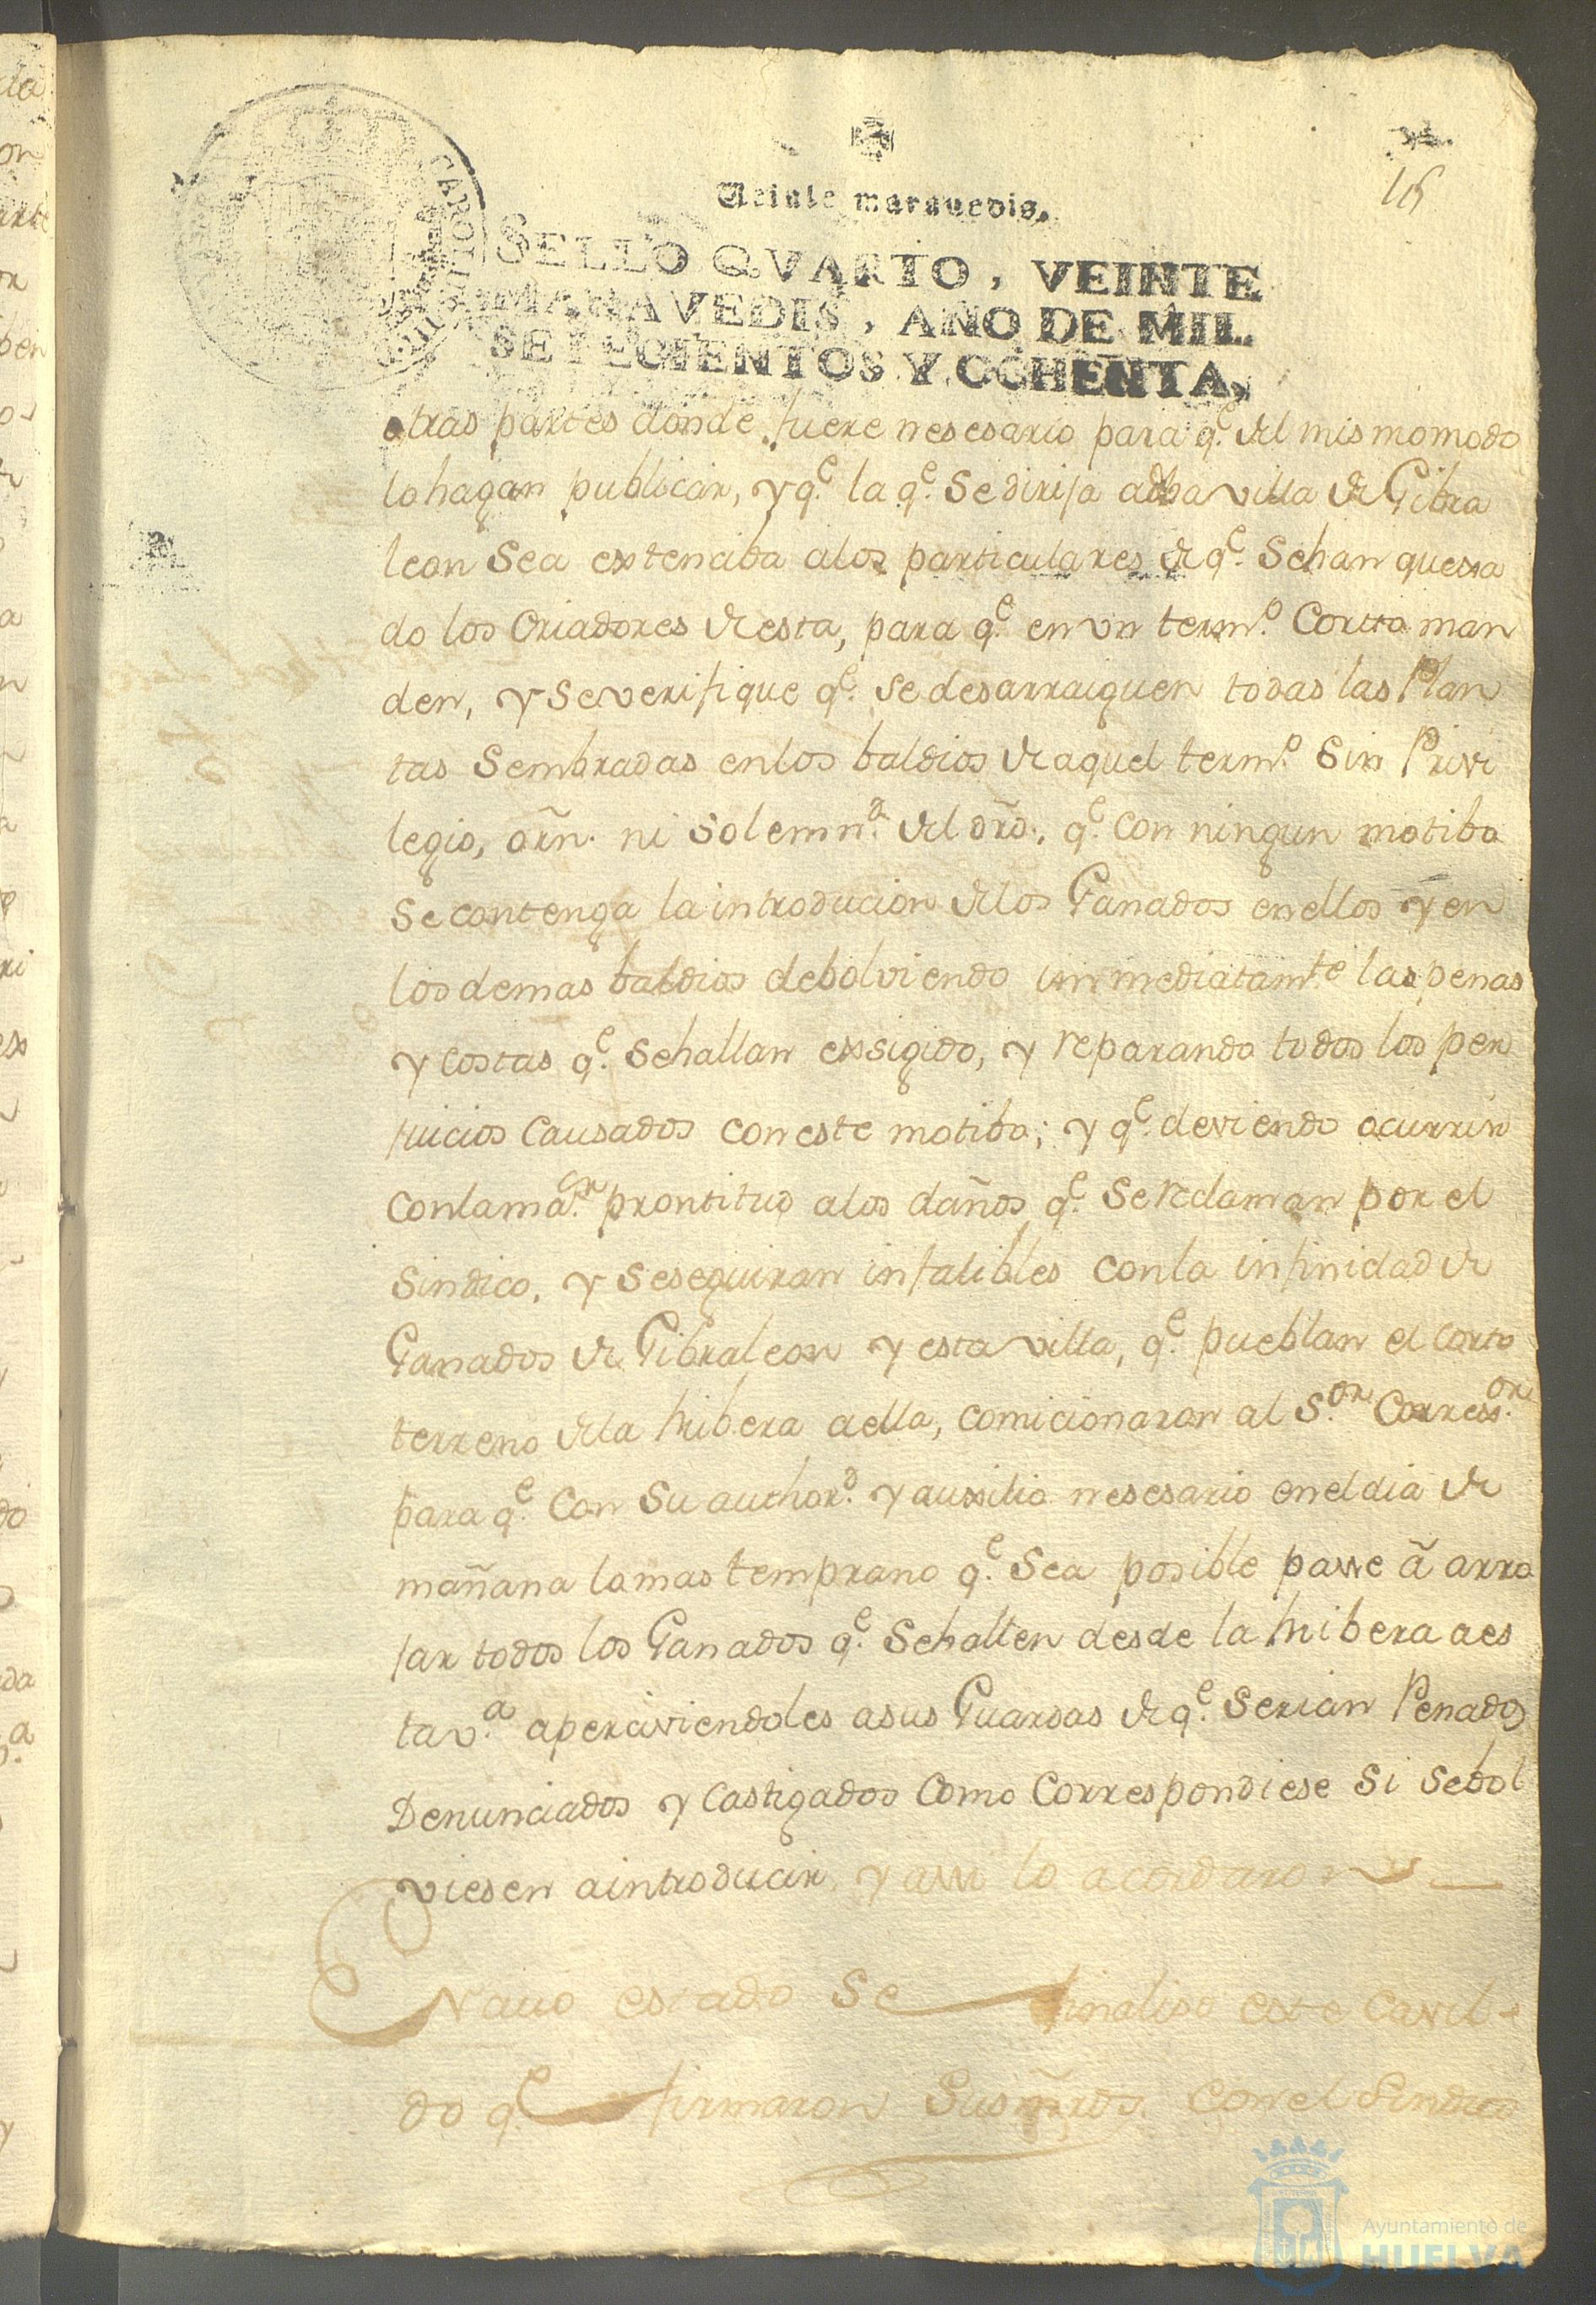 Veinte maravedis.
16
SELLO QVARTO, VEINTE
MARAVEDIS, AÑO DE MIL
SETECIENTOS Y OCHENTA,
CAROLUS III D.G.
otras partes donde fuere nesesario para q.e del mismo modo
lo hagan publicar, y q.e la q.e Se dirija a dha villa de Gibra
leon Sea extenciba alos particulares de q.e Se han quexa
do los Criadores de esta, para q.e en un term.o Corto man
den, y Se verifique q.e se desarraiguen todas las Plan
tas Sembradas en los baldios de aquel term.o Sin Privi
legio, orñ. ni Solemn.d del dr̃o., q.e con ningun motibo
Se contenga la introducion de los Ganados en ellos y en
los demas baldios debolviendo inmediatam.te las penas
y costas q.e Se hallan exsigido, y reparando todos los per
juicios Causados con este motibo; y q.e deviendo ocurrir
con la ma.or prontitud a los daños q.e Se reclaman por el
Sindico, y Se seguiran infalibles con la infinidad de
Ganados de Gibraleon y esta villa, q.e pueblan el corto
terreno de la hribera a ella, comicionaron al S.or Corress.or
para q.e Con Su authori.d y auxilio nesesario en el dia de
mañana lo mas temprano q.e Sea posible passe ã arro
jar todos los Ganados q.e Se hallen desde la hribera a es
ta v.a aperciviendoles a sus Guardas de q.e Serian Penados
Denunciados y Castigados Como Correspondiese Si Se bol
viesen a introducir, y assi lo acordaron
En cuio estado Se finaliso este Cavil
do q.e firmaron Sus mr̃ds. con el Sindico
Ayuntamiento de
HUELVA